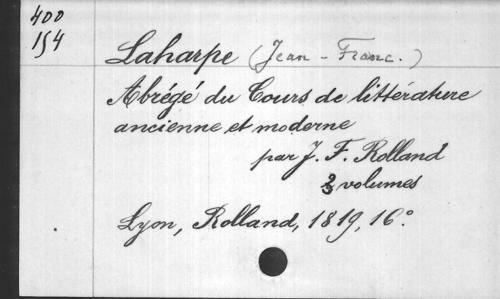 400
154
Laharpe (Jean-Franc.)
Abrégé du Cours de littérature
ancienne et moderne
par J. F. Rolland
volumes
Lyon, Rolland, 1819, 16°